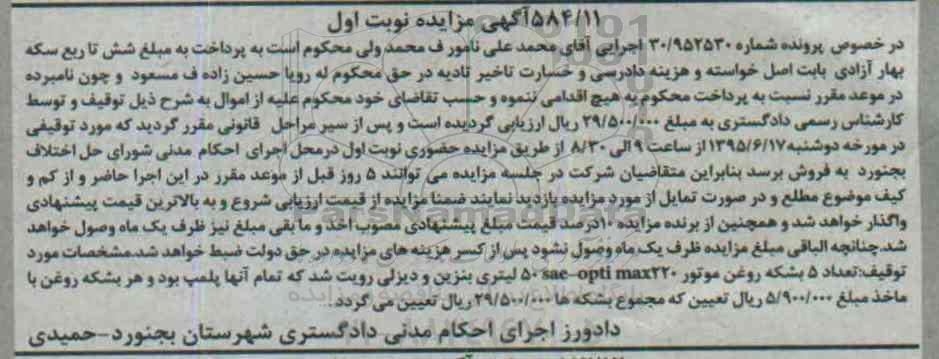 ۵۸۴/۱۱آگهی مزایده نوبت اول
در خصوص پرونده شماره ۳۰/۹۵۲۵۳۰ اجرایی آقای محمد علی نامور ف محمد ولی محکوم است به پرداخت به مبلغ شش تا ربع سکه
بهار آزادی بابت اصل خواسته و هزینه دادرسی و خسارت تاخیر تادیه در حق محکوم له رویا حسین زاده ف مسعود و چون نامبرده
در موعد مقرر نسبت به پرداخت محکوم به هیچ اقدامی ننموه و حسب تقاضای خود محکوم علیه از اموال به شرح ذیل توقیف و توسط
کارشناس رسمی دادگستری به مبلغ ۲۹/۵۰۰/۰۰۰ ریال ارزیابی گردیده است و پس از سیر مراحل قانونی مقرر گردید که مورد توقیفی
در مورخه دوشنبه ۱۳۹۵/۶/۱۷ از ساعت ۹ الی ۸/۳۰ از طریق مزایده حضوری نوبت اول درمحل اجرای احکام مدنی شورای حل اختلاف
بجنورد به فروش برسد بنابراین متقاضیان شرکت در جلسه مزایده می توانند ۵ روز قبل از موعد مقرر در این اجرا حاضر و از کم و
کیف موضوع مطلع و در صورت تمایل از مورد مزایده بازدید نمایند ضمنا مزایده از قیمت ارزیابی شروع و به بالاترین قیمت پیشنهادی
واگذار خواهد شد و همچنین از برنده مزایده ۱۰درصد قیمت مبلغ پیشنهادی مصوب اخذ و ما بقی مبلغ نیز ظرف یک ماه وصول خواهد
شد.چنانچه الباقی مبلغ مزایده ظرف یک ماه وصول نشود پس از کسر هزینه های مزایده در حق دولت ضبط خواهد شد.مشخصات مورد
توقیف:تعداد ۵ بشکه روغن موتور sae-opti max۲۲۰ ۵۰ لیتری بنزین و دیزلی رویت شد که تمام آنها پلمپ بود و هر بشکه روغن با
ماخذ مبلغ ۵/۹۰۰/۰۰۰ ریال تعیین که مجموع بشکه ها ۲۹/۵۰۰/۰۰۰ ریال تعیین می گردد.
دادورز اجرای احکام مدنی دادگستری شهرستان بجنورد-حمیدی
ParsNamadData